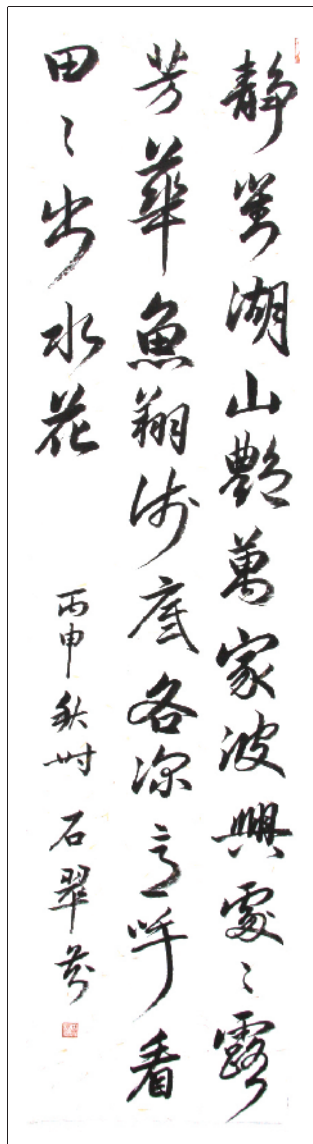 靜湖山艷萬家波興處々露
芳華魚翔浅底各深意呼看
田々出水花
丙申秋时 石翠芬